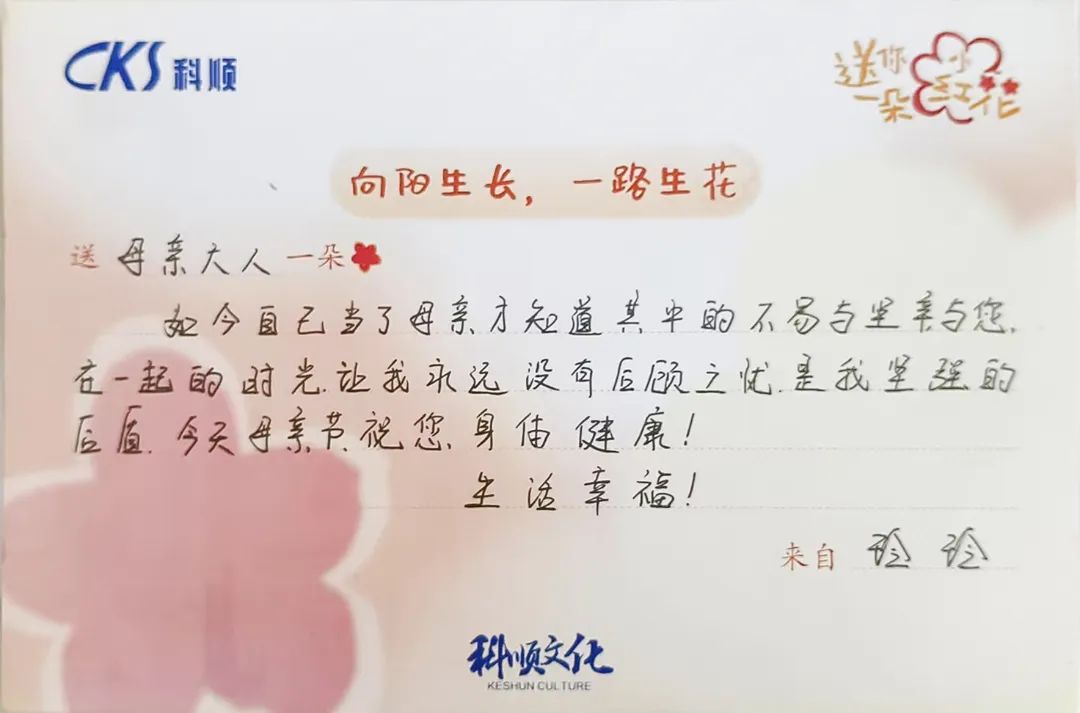 CKS 科顺
送你
一朵
小
红花
向阳生长，一路生花
送 母亲大人 一朵
如今自己当了母亲,才知道其中的不易与坚辛与您.
在一起的时光.让我永远没有后顾之忧.是我坚强的
后盾.今天母亲节,祝您.身体健康!
生活幸福!
来自 玲玲
科顺文化
KESHUN CULTURE